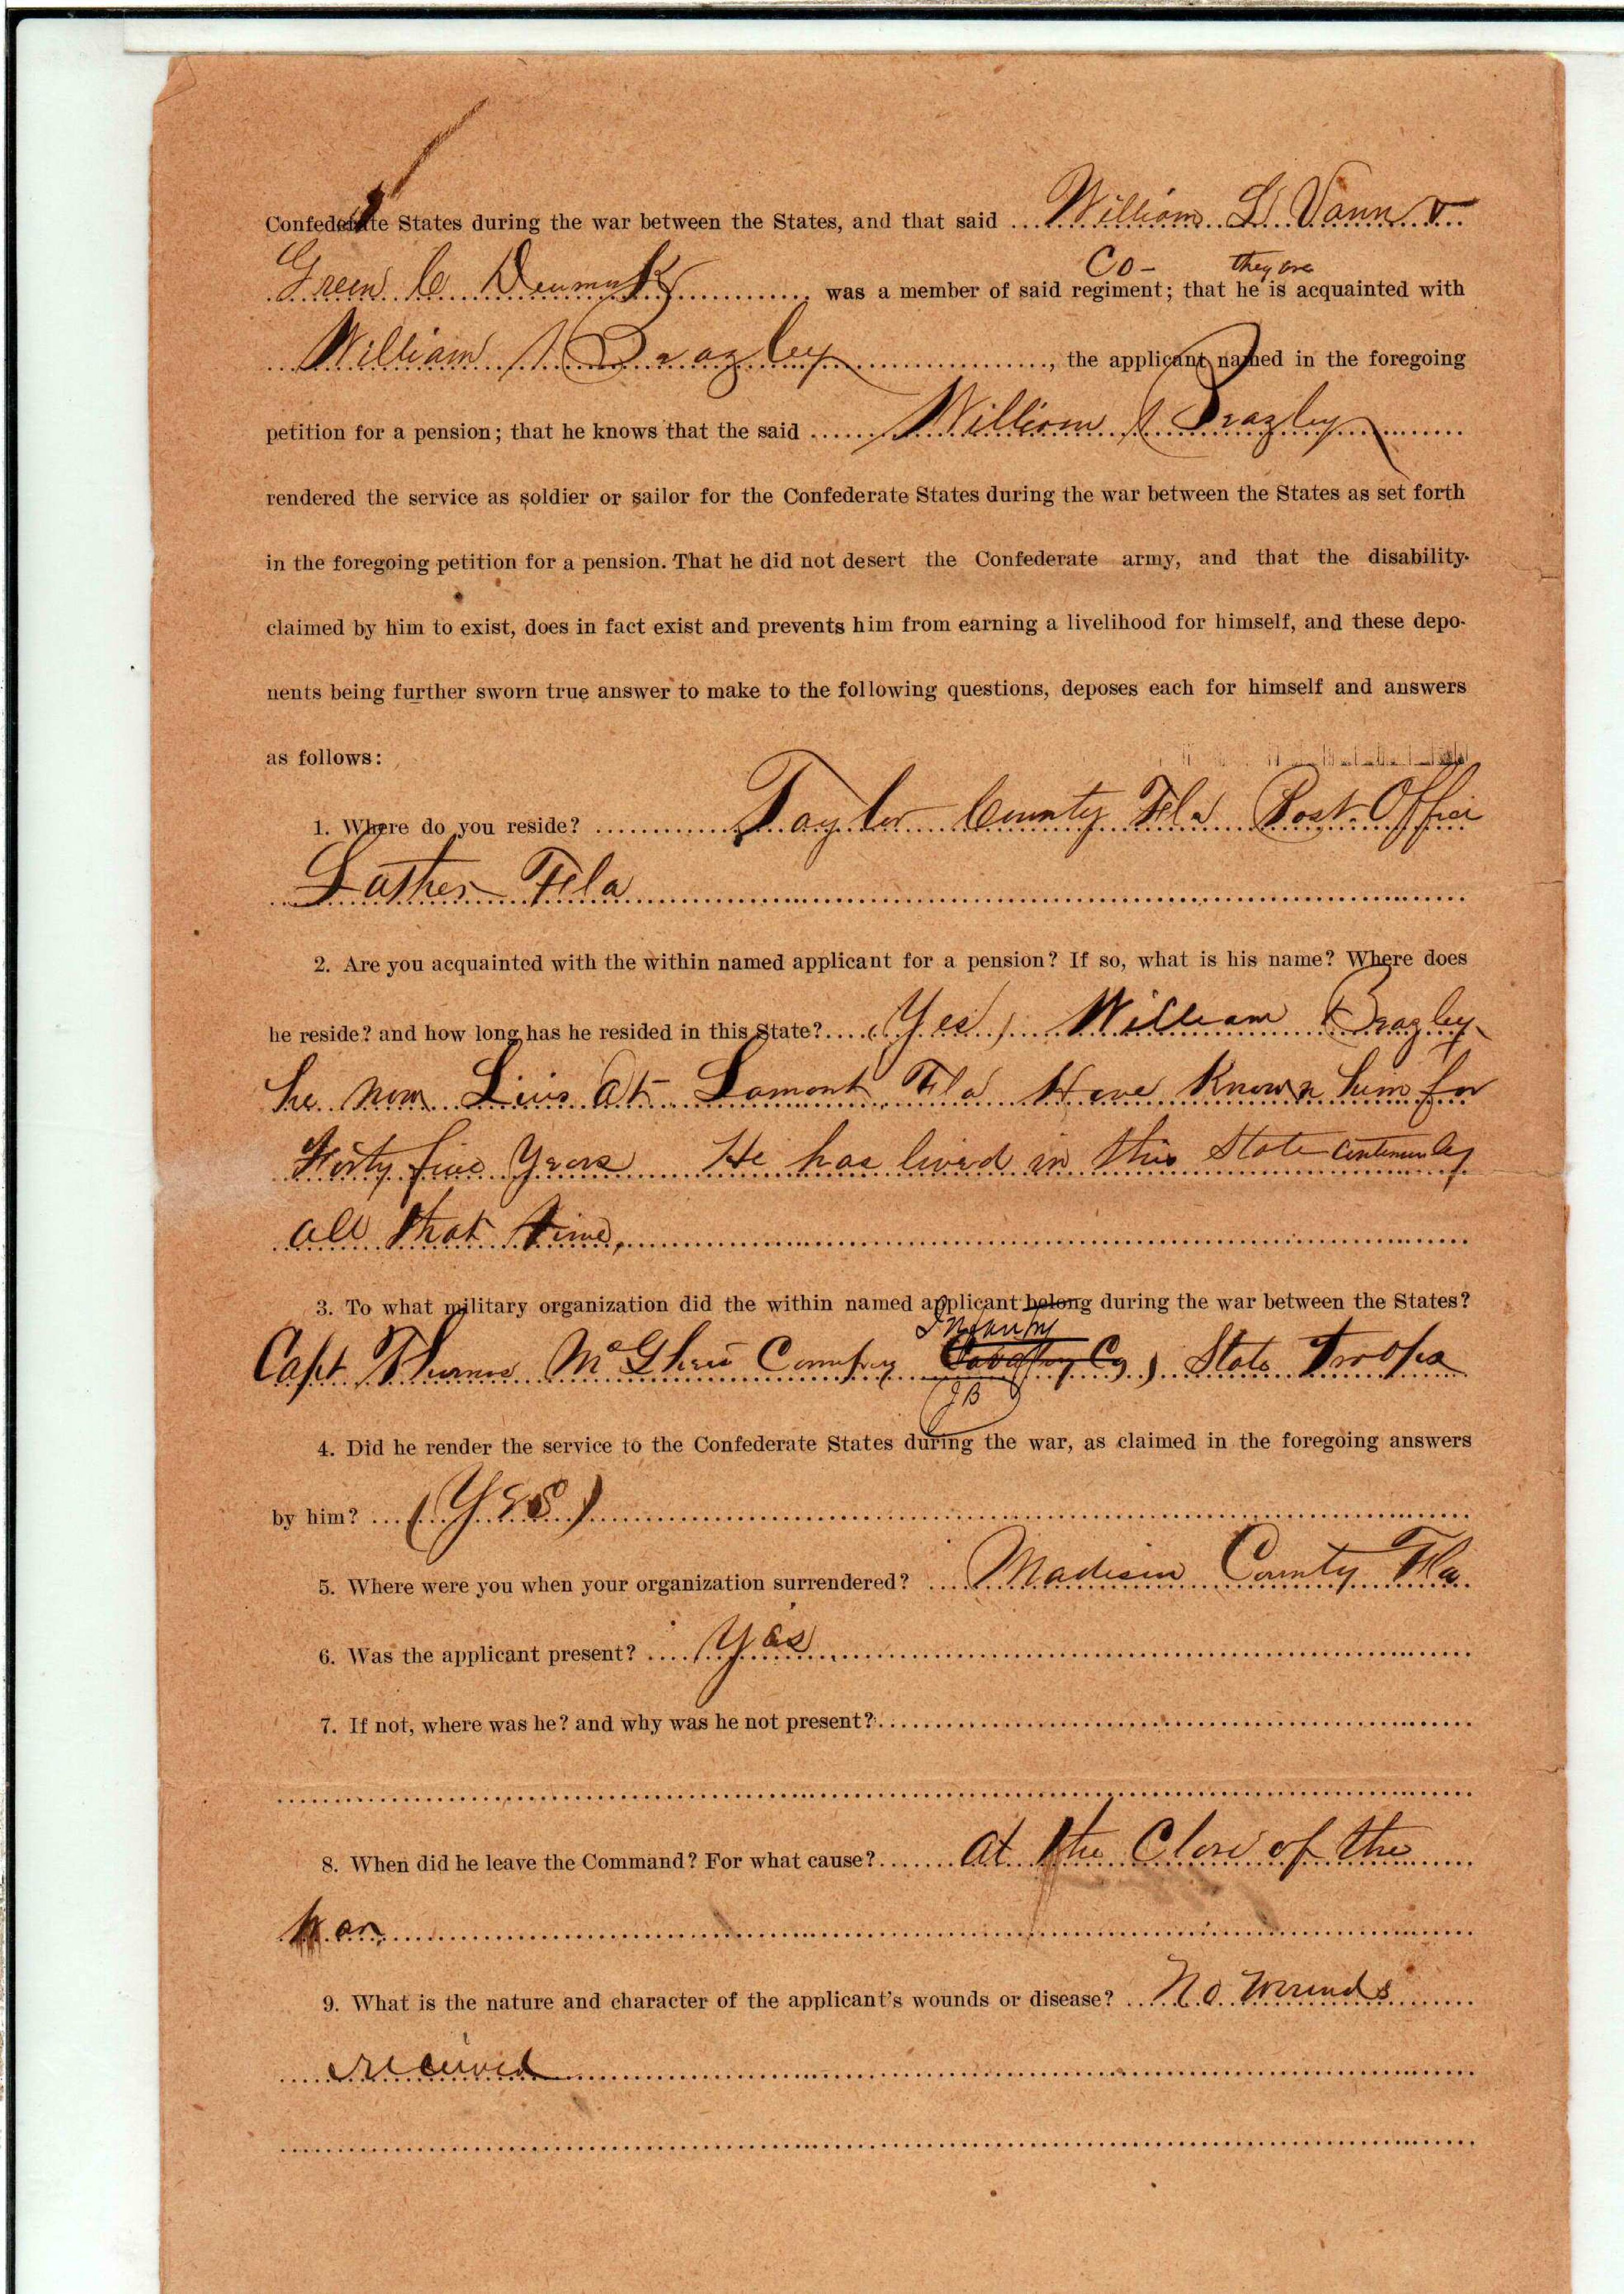 Confederate States during the war between the States, and that said William L. Vann &
Green C Denmark was a member of said regiment; that he is acquainted with
Co- they are
William Brazley, the applicant named in the foregoing
petition for a pension; that he knows that the said William Brazley
rendered the service as soldier or sailor for the Confederate States during the war between the States as set forth
in the foregoing petition for a pension. That he did not desert the Confederate army, and that the disability
claimed by him to exist, does in fact exist and prevents him from earning a livelihood for himself, and these depo-
nents being further sworn true answer to make to the following questions, deposes each for himself and answers
as follows:
1. Where do you reside? Taylor County Fla Post Office
Luther Fla
2. Are you acquainted with the within named applicant for a pension? If so, what is his name? Where does
he reside? and how long has he resided in this State? (Yes) William Brazley
he now Livis at Lamont Fla Have Known him for
Forty five Years He has lived in this State
all that time,
3. To what military organization did the within named applicant belong during the war between the States?
Infantry
Capt Thomas McGhee Company Cavalry Co, State Troops
JB
4. Did he render the service to the Confederate States during the war, as claimed in the foregoing answers
by him? (Yes)
5. Where were you when your organization surrendered? Madison County Fla.
6. Was the applicant present? Yes
7. If not, where was he? and why was he not present?
8. When did he leave the Command? For what cause? at the Close of the
War
9. What is the nature and character of the applicant's wounds or disease? No wounds
received